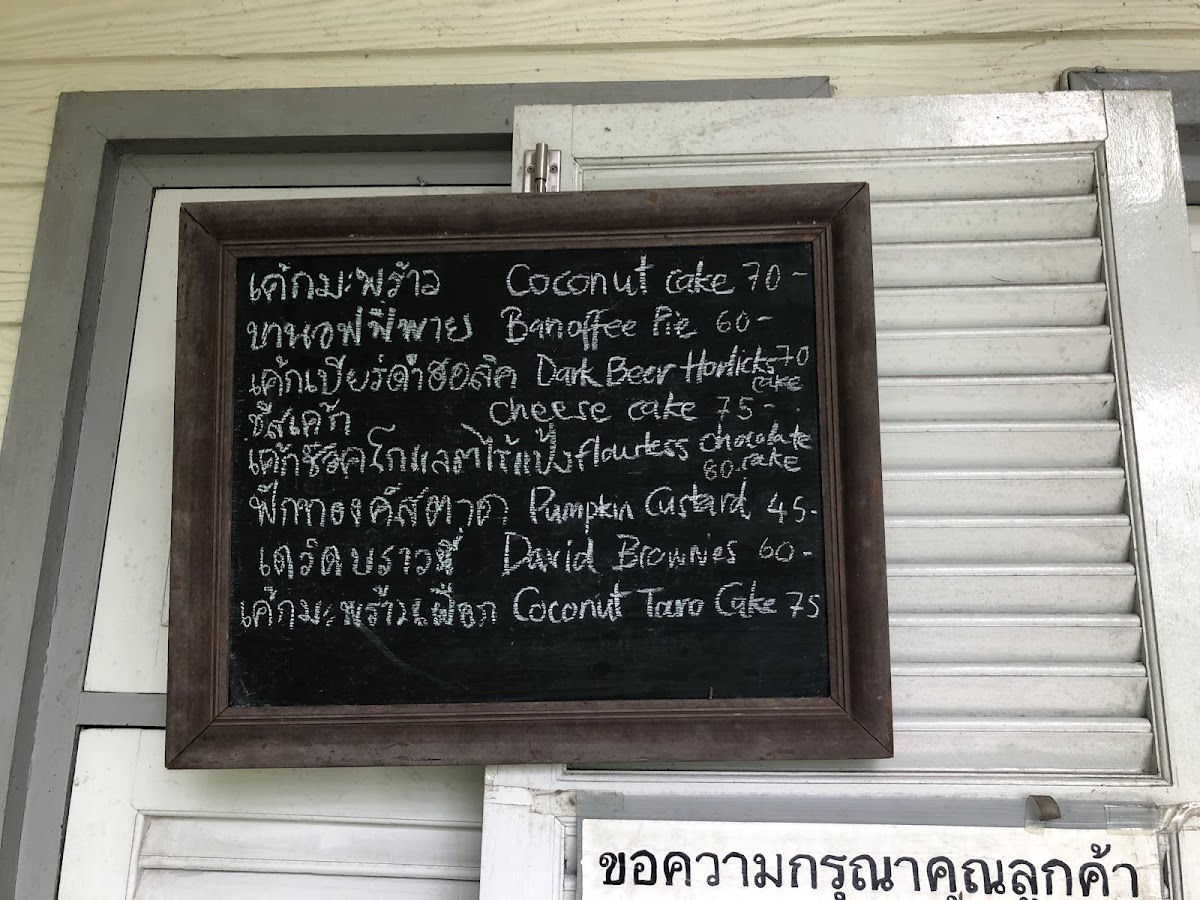 เค้กมะพร้าว Coconut cake 70-
บานอฟฟี่พาย Banoffee Pie 60-
เค้กเบียร์ดำฮอลิค Dark Beer Horlicks 70
cake
ชีสเค้ก cheese cake 75-
เค้กช็อคโกแลตไร้แป้ง flourless chocolate
80.- cake
ฟักทองคัสตาด Pumpkin Custard 45-
เดวิดบราวนี่ David Brownies 60-
เค้กมะพร้าวเผือก Coconut Taro Cake 75
ขอความกรุณาคุณลูกค้า